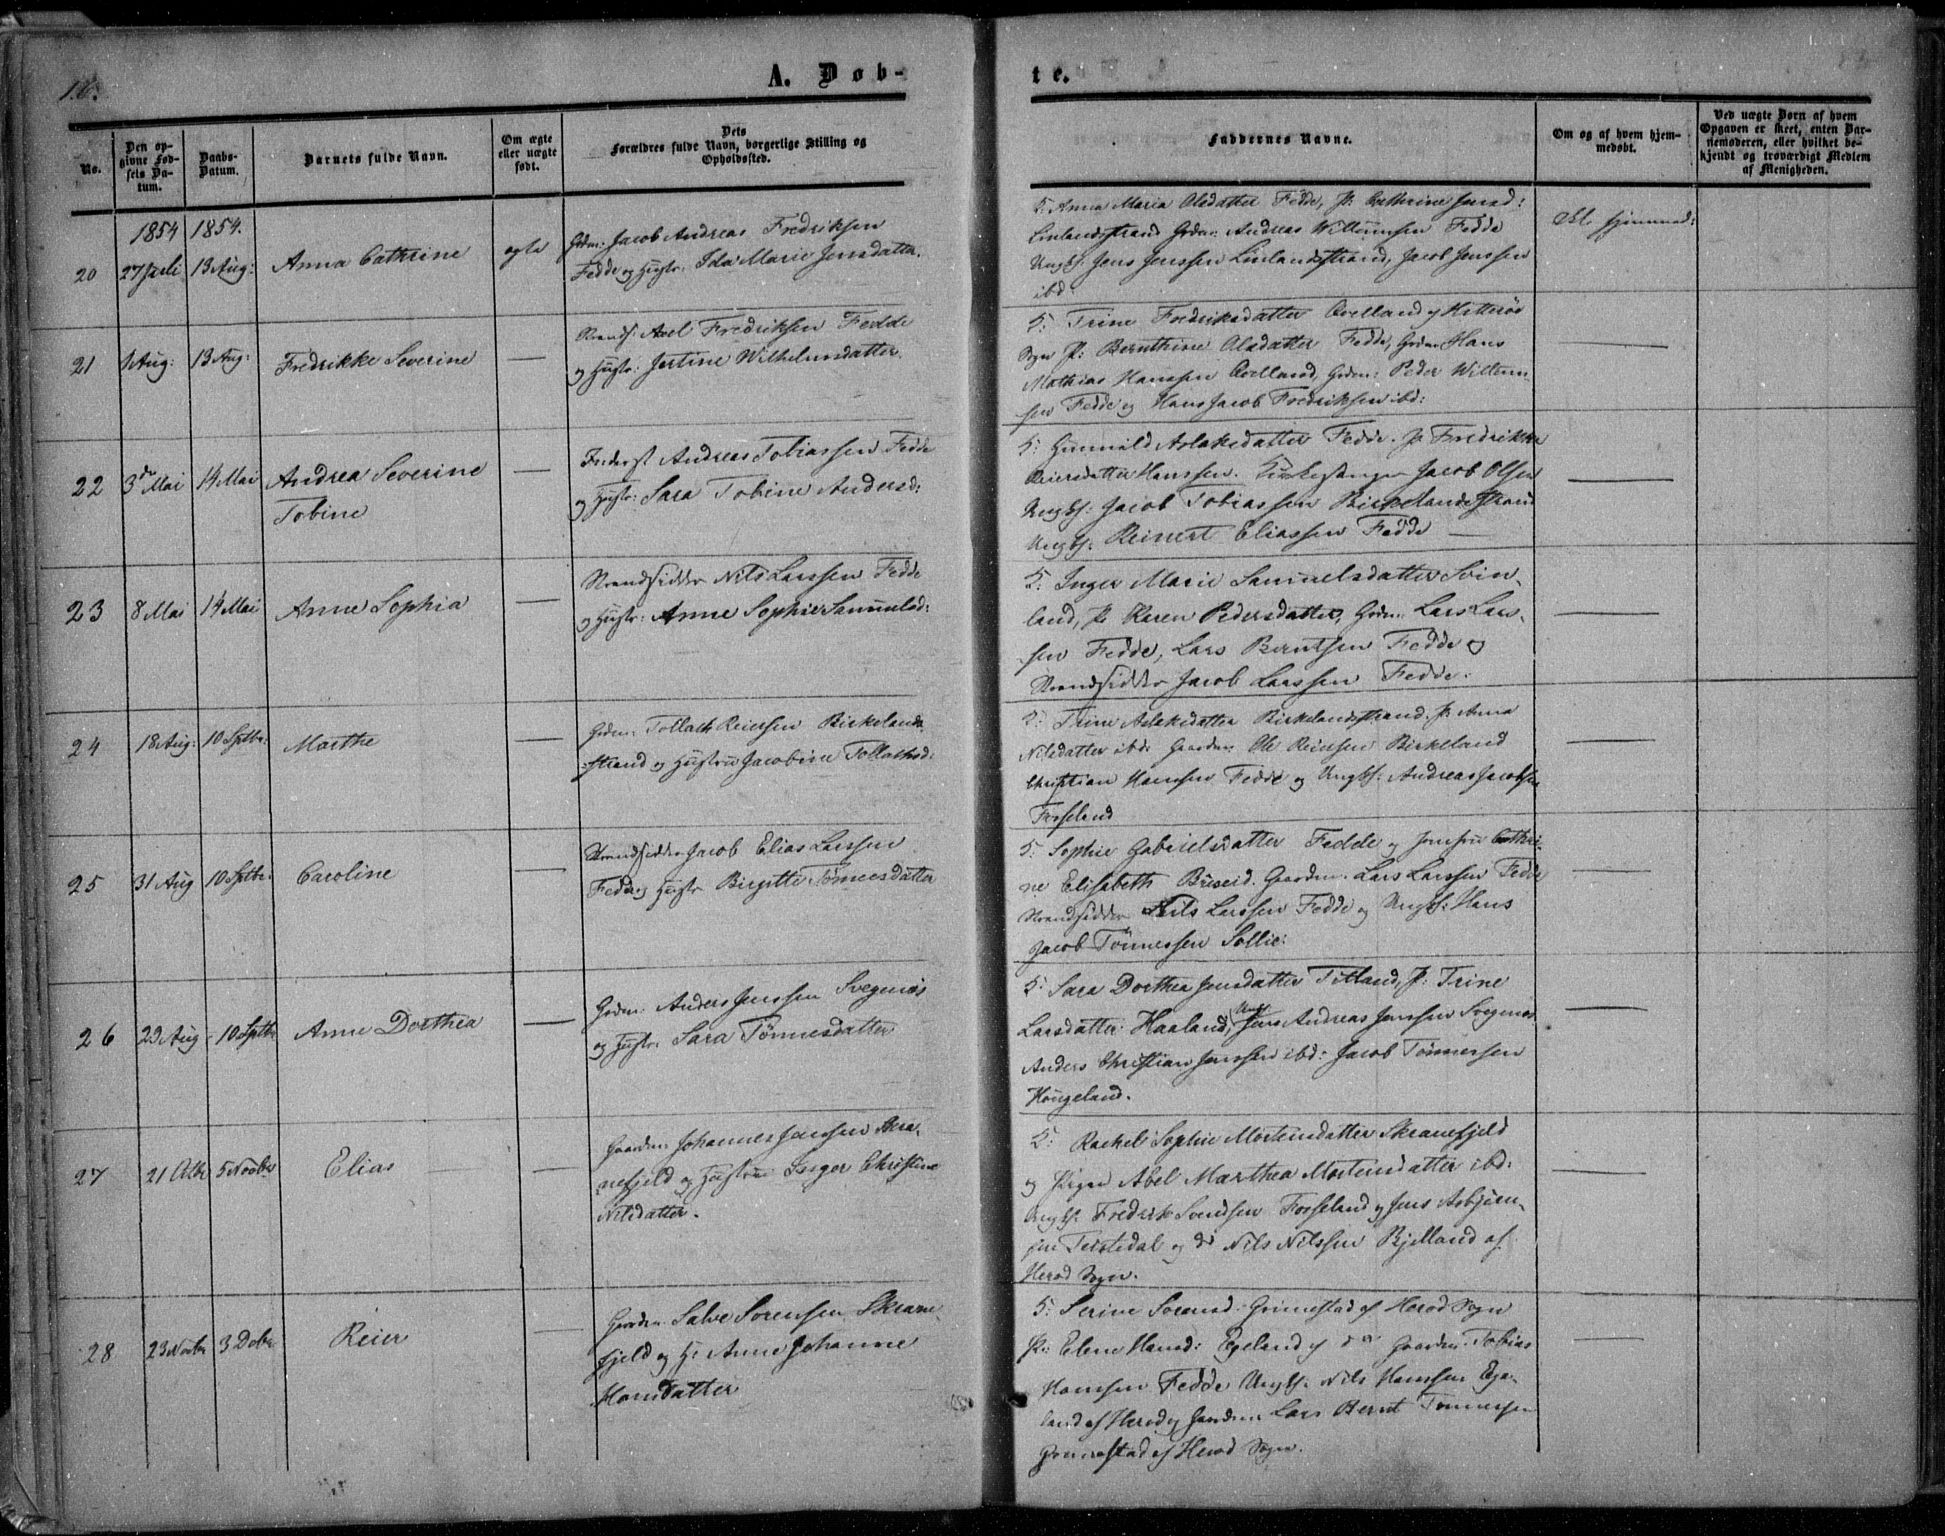 16.
A. Døb-
te.
No.
Den opgivne Fødsels Datum.
Daabs-Datum.
Barnets fulde Navn.
Om ægte eller uægte født.
Dets Forældres fulde Navn, borgerlige Stilling og Opholdssted.
Faddernes Navne.
Om og af hvem hjemmedøbt.
Ved uægte Børn af hvem Opgaven er skeet, enten Barnemoderen, eller hvilket bekjendt og troværdigt Medlem af Menigheden.
1854 1854.
20 27 Juli 13 Aug: Anna Cathrine ægte
Grdm: Jacob Andreas Fredriksen
Fedde og Hustr: Ida Marie Jensdatter.
5. Anna Maria Olsdatter Fedde, P. Cathrine Jensd:
Linlandstrand Grdm: Andreas Willumsen Fedde
Ungk: Jens Jenssen Linlandstrand, Jacob Jenssen
ibd:
21 1 Aug: 13 Aug: Fredrikke Severine —
Strands: Axel Fredriksen Fedde
og Hustr: Jertine Wilhelmsdatter.
5: Trine Fredriksdatter Qvelland af Hitterø
Sogn P: Bernthine Olsdatter Fedde, Grdm Hans
Mathias Hanssen Qvelland, Grdm: Peder Willum-
sen Fedde og Hans Jacob Fredriksen ibd:
22 3de Mai 14 Mai Andrea Severine
Tobine —
Inderst Andreas Tobiassen Fedde
og Hustr: Sara Tobine Andersd:
5: Gunvald Aslaksdatter Fedde. P. Fredrikke
Reiersdatter Hanssen. Kirkesanger Jacob Olsen
Ungk: Jacob Tobiassen Birkelandsstrand
Ungk: Reinert Eliassen Fedde —
23 8 Mai 14 Mai Anne Sophia —
Strandsidder Nils Larssen Fedde
og Hustr: Anne Sophie Samuelsd:
5: Inger Marie Samuelsdatter Svin-
land, P. Karen Pedersdatter, Grdm. Lars Lars-
sen Fedde, Lars Berntsen Fedde og
Strandsidder Jacob Larssen Fedde.
24 18 Aug: 10 Sptbr: Marthe —
Grdm: Tollak Reiersen Birkelands-
strand og Hustru Jacobine Tollaksd:
5: Trine Aslaksdatter Birkelandsstrand. P. Anna
Nilsdatter ibd: Gaardm Ole Reiersen Birkeland
Christian Hanssen Fedde og Ungk: Andreas Jacobsen
Forseland
25 31 Aug 10 Sptbr: Caroline —
Strandsidder Jacob Elias Larssen
Fedde og Hustr Birgitte Tønnesdatter
5: Sophie Gabrielsdatter Fedde og Jomfru Cathri-
ne Elisabeth Briseid. Gaardm. Lars Larssen Fedde
Strandsidder Nils Larssen Fedde og Ungk: Hans
Jacob Tønnessen Sollie:
26 23 Aug 10 Sptbr Anne Dorthea —
Grdm: Anders Jenssen Svegenæs
og Hustr. Sara Tønnesdatter
5: Sara Dorthea Jensdatter Titland, P: Trine
Larsdatter Haaland, Ungk Jens Andreas Jenssen Svegenæs
Anders Christian Jenssen ibd: Jacob Tønnessen
Hougeland.
27 21 Octbr 5 Novbr Elias —
Gaardm: Johannes Jenssen Skra-
nefjeld og Hustru Inger Christine
Nilsdatter.
5: Rachel Sophie Mortensdatter Skranefjeld
og Pigen Abel Marthea Mortensdatter ibd:
Ungk. Fredrik Svendsen Forseland og Jens Asbjørn-
sen Teistedal og do Nils Nilssen Bjelland af
Herod Sogn.
28 23 Novbr 3 Debr Reier —
Gaardm Salve Sørensen Skrane-
fjeld og H. Anne Johanne
Hansdatter
5: Serine Sørensd: Grimestad af Herod Sogn
P: Elene Hansd: Egeland af do Gaardm. Tobias
Hanssen Fedde Ungk. Nils Hanssen Ege-
land af Herod og Gaardm Lars Bernt Tønnessen
Grimestad af Herod Sogn.